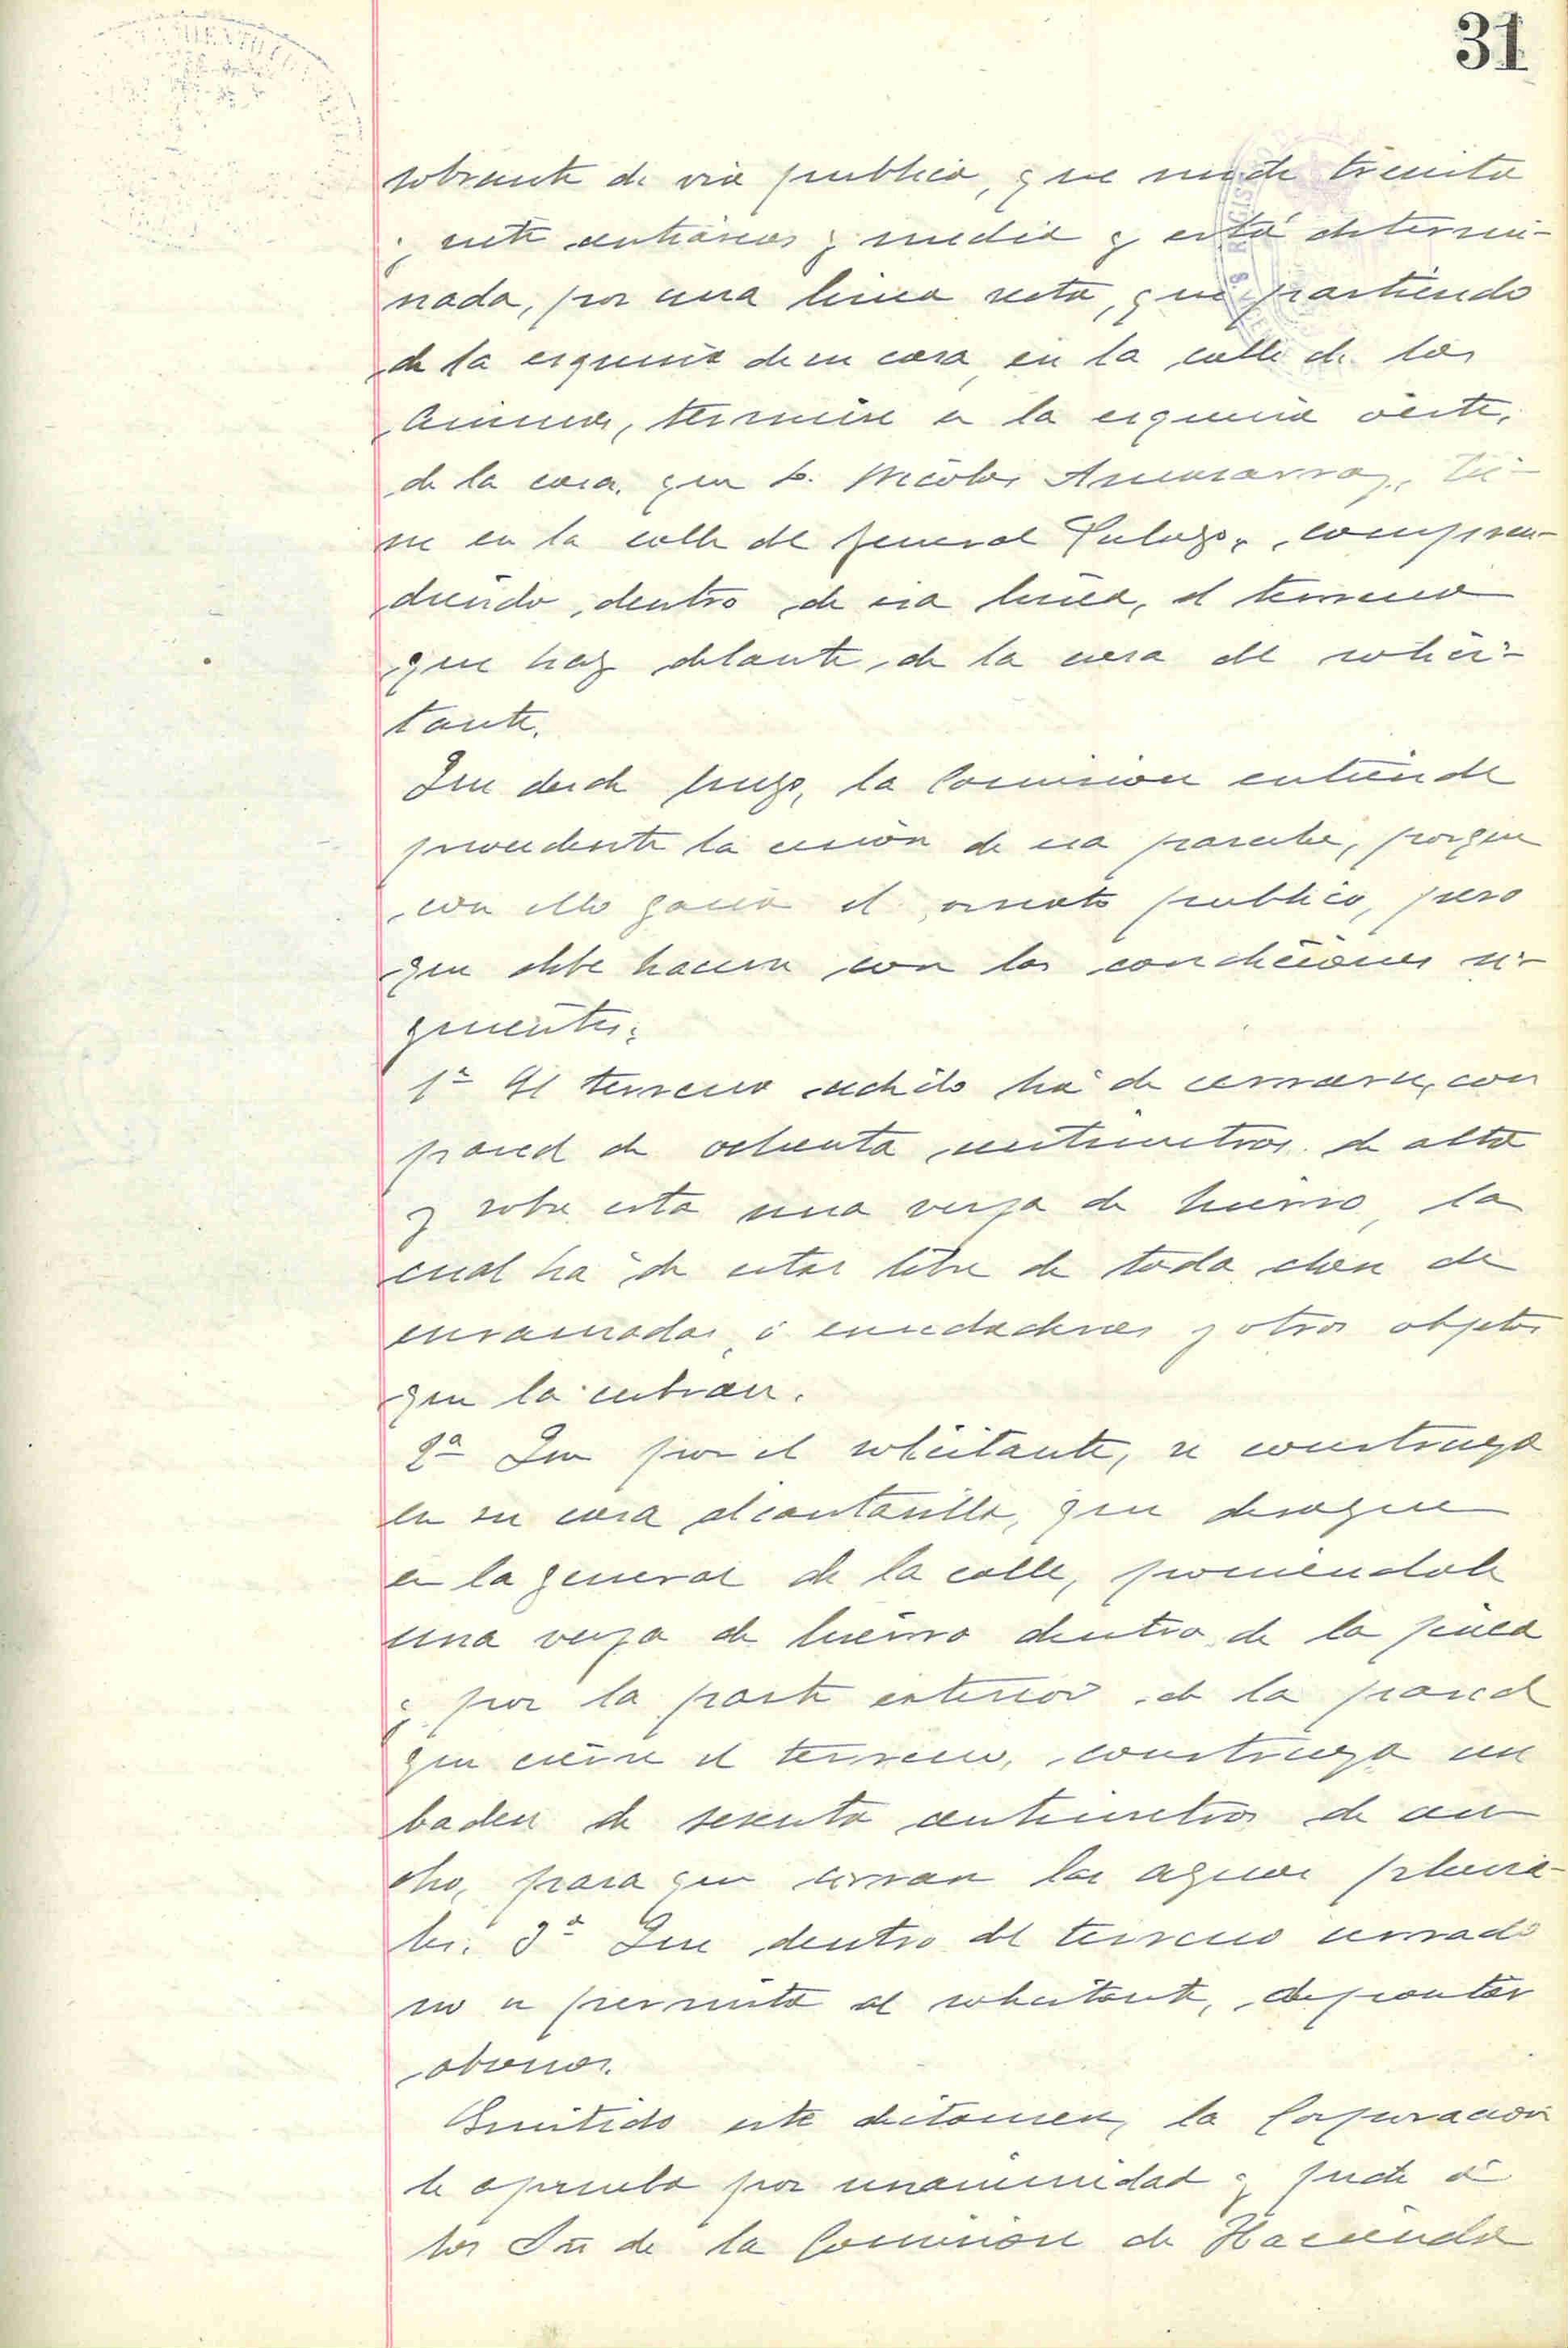 31
sobrante de via publica, que mide treinta
y siete centiáreas y media y está determi-
nada, por una linea recta, que partiendo
de la esquina de su casa, en la calle de las
Animas, termine a la esquina oeste,
de la casa, que D. Nicolas tie-
ne en la calle del General Pulido, compren-
diendo, dentro de esa linea, el terreno
que hay delante, de la casa del solici-
tante.
Que desde luego, la Comision entiende
procedente la cesión de esa parcela, porque
con ello gana el ornato publico, pero
que debe hacerse con las condiciones si-
guientes:
1ª El terreno cedido ha de cerrarse, con
pared de ochenta centimetros de alto
y sobre esta una verja de hierro, la
cual ha de estar libre de toda clase de
enramadas, ó enredaderas y otros objetos
que la cubran.
2ª Que por el solicitante, se construya
en su casa alcantarilla, que desague
en la general de la calle, poniendole
una verja de hierro dentro de la finca
y por la parte exterior de la pared
que cierre el terreno, construya un
baden de sesenta centimetros de an
cho, para que corran las aguas pluvia-
les. 3ª Que dentro del terreno cerrado
no se permita al solicitante, depositar
abonos.
Emitido este dictamen, la Corporacion
le aprueba por unanimidad y pide á
los Sres de la Comision de Hacienda